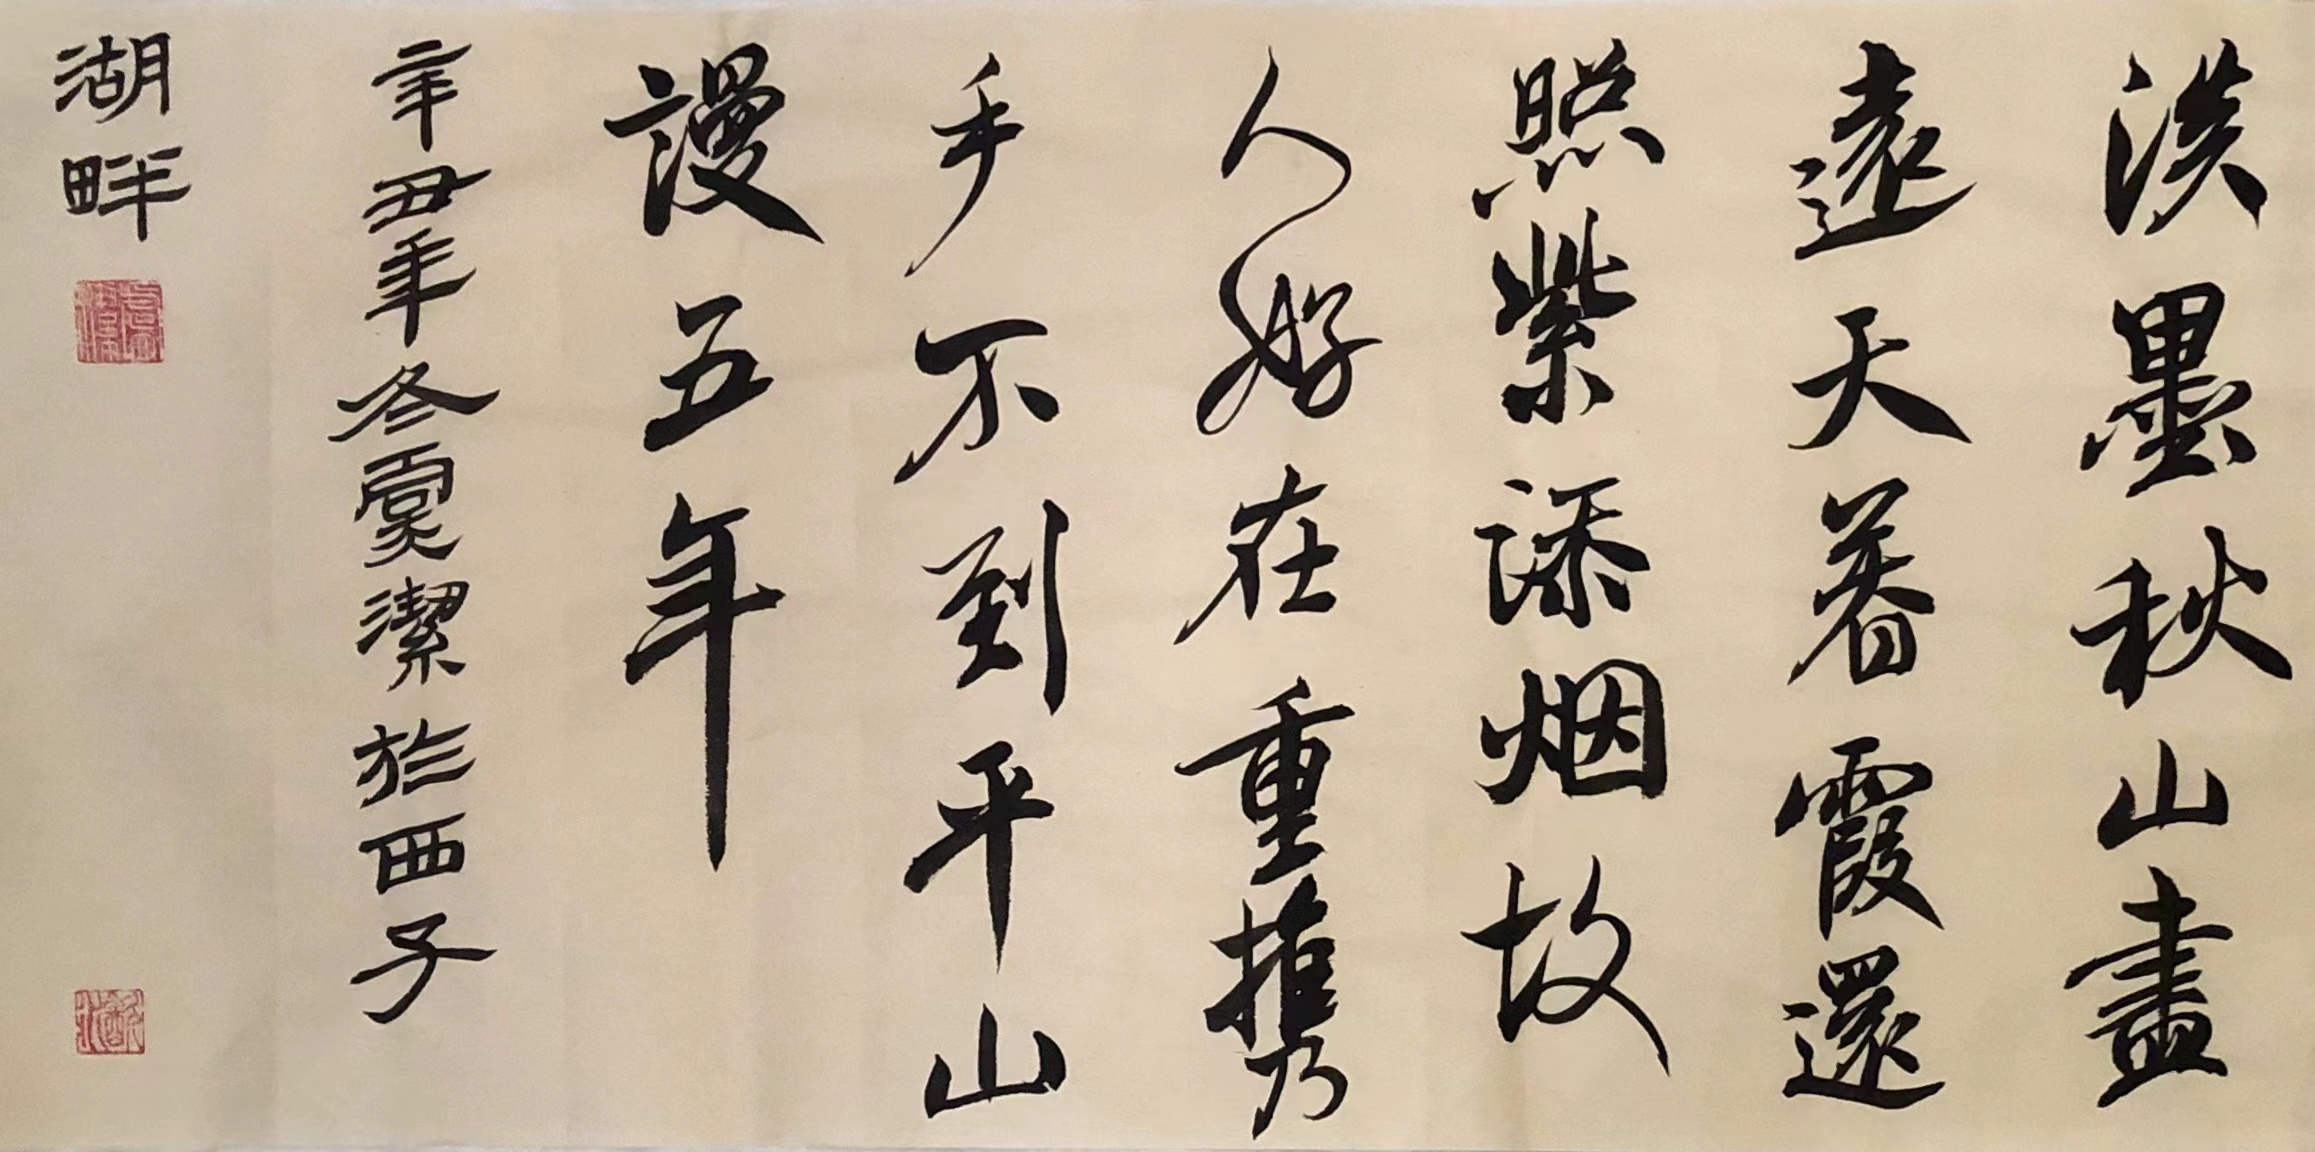 淡墨秋山盡
遠天暮霞還
照紫添烟故
人好在重携
手不到平山
謾五年
辛丑年冬虞潔於西子
湖畔